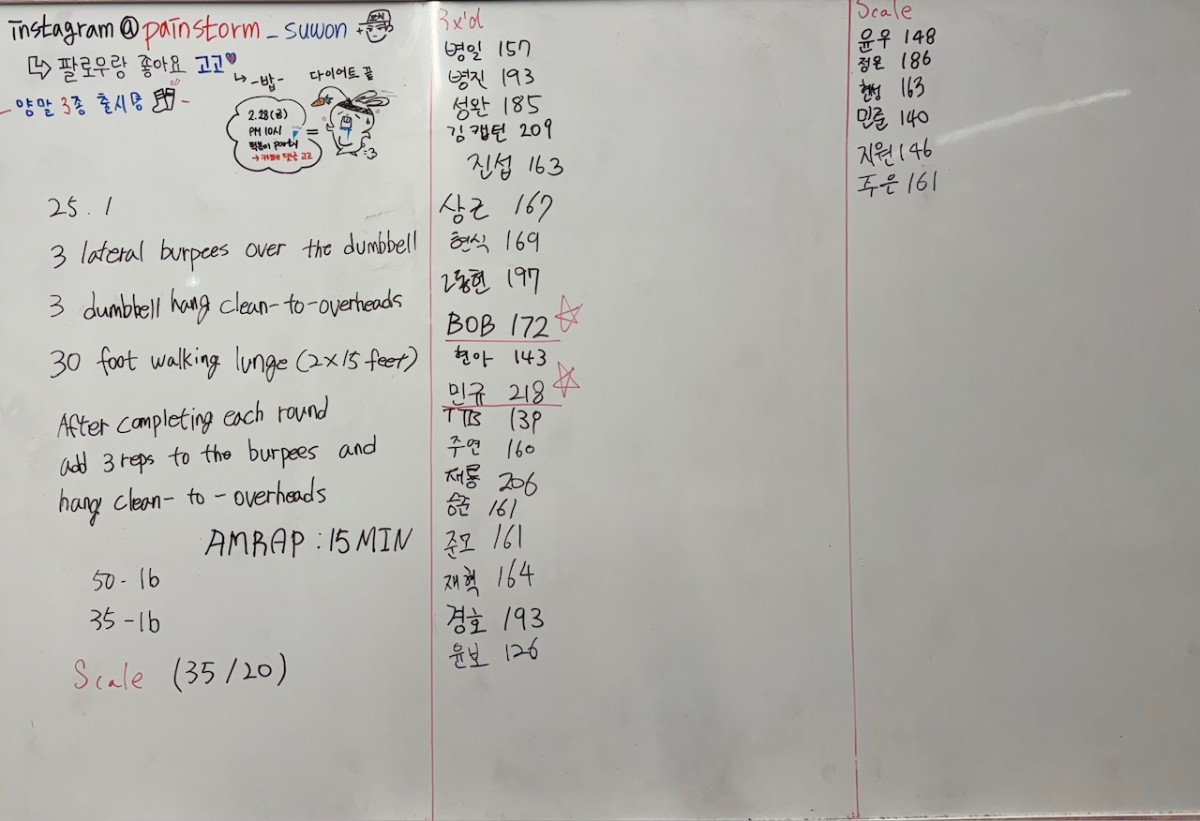 instagram@painstorm_suwon
팔로우랑 좋아요 고고
- 양말 3종 출시중 -
-밥-
다이어트 끝
2.28(금)
PM 10시
떡볶이 party
→ 카페에 댓글 고고
=
25.1
3 lateral burpees over the dumbbell
3 dumbbell hang clean-to-overheads
30 foot walking lunge (2×15 feet)
After completing each round
add 3 reps to the burpees and
hang clean-to-overheads
AMRAP : 15 MIN
50-lb
35-lb
Scale (35/20)
Rx'd
병일 157
병진 193
성완 185
김캡틴 209
진섭 163
상근 167
현식 169
2동현 197
BOB 172
현아 143
민규 218
TTB 139
주연 160
재룡 206
승준 161
준모 161
재혁 164
경호 193
윤보 126
Scale
윤우 148
정원 186
현성 163
민준 140
지원 146
주은 161